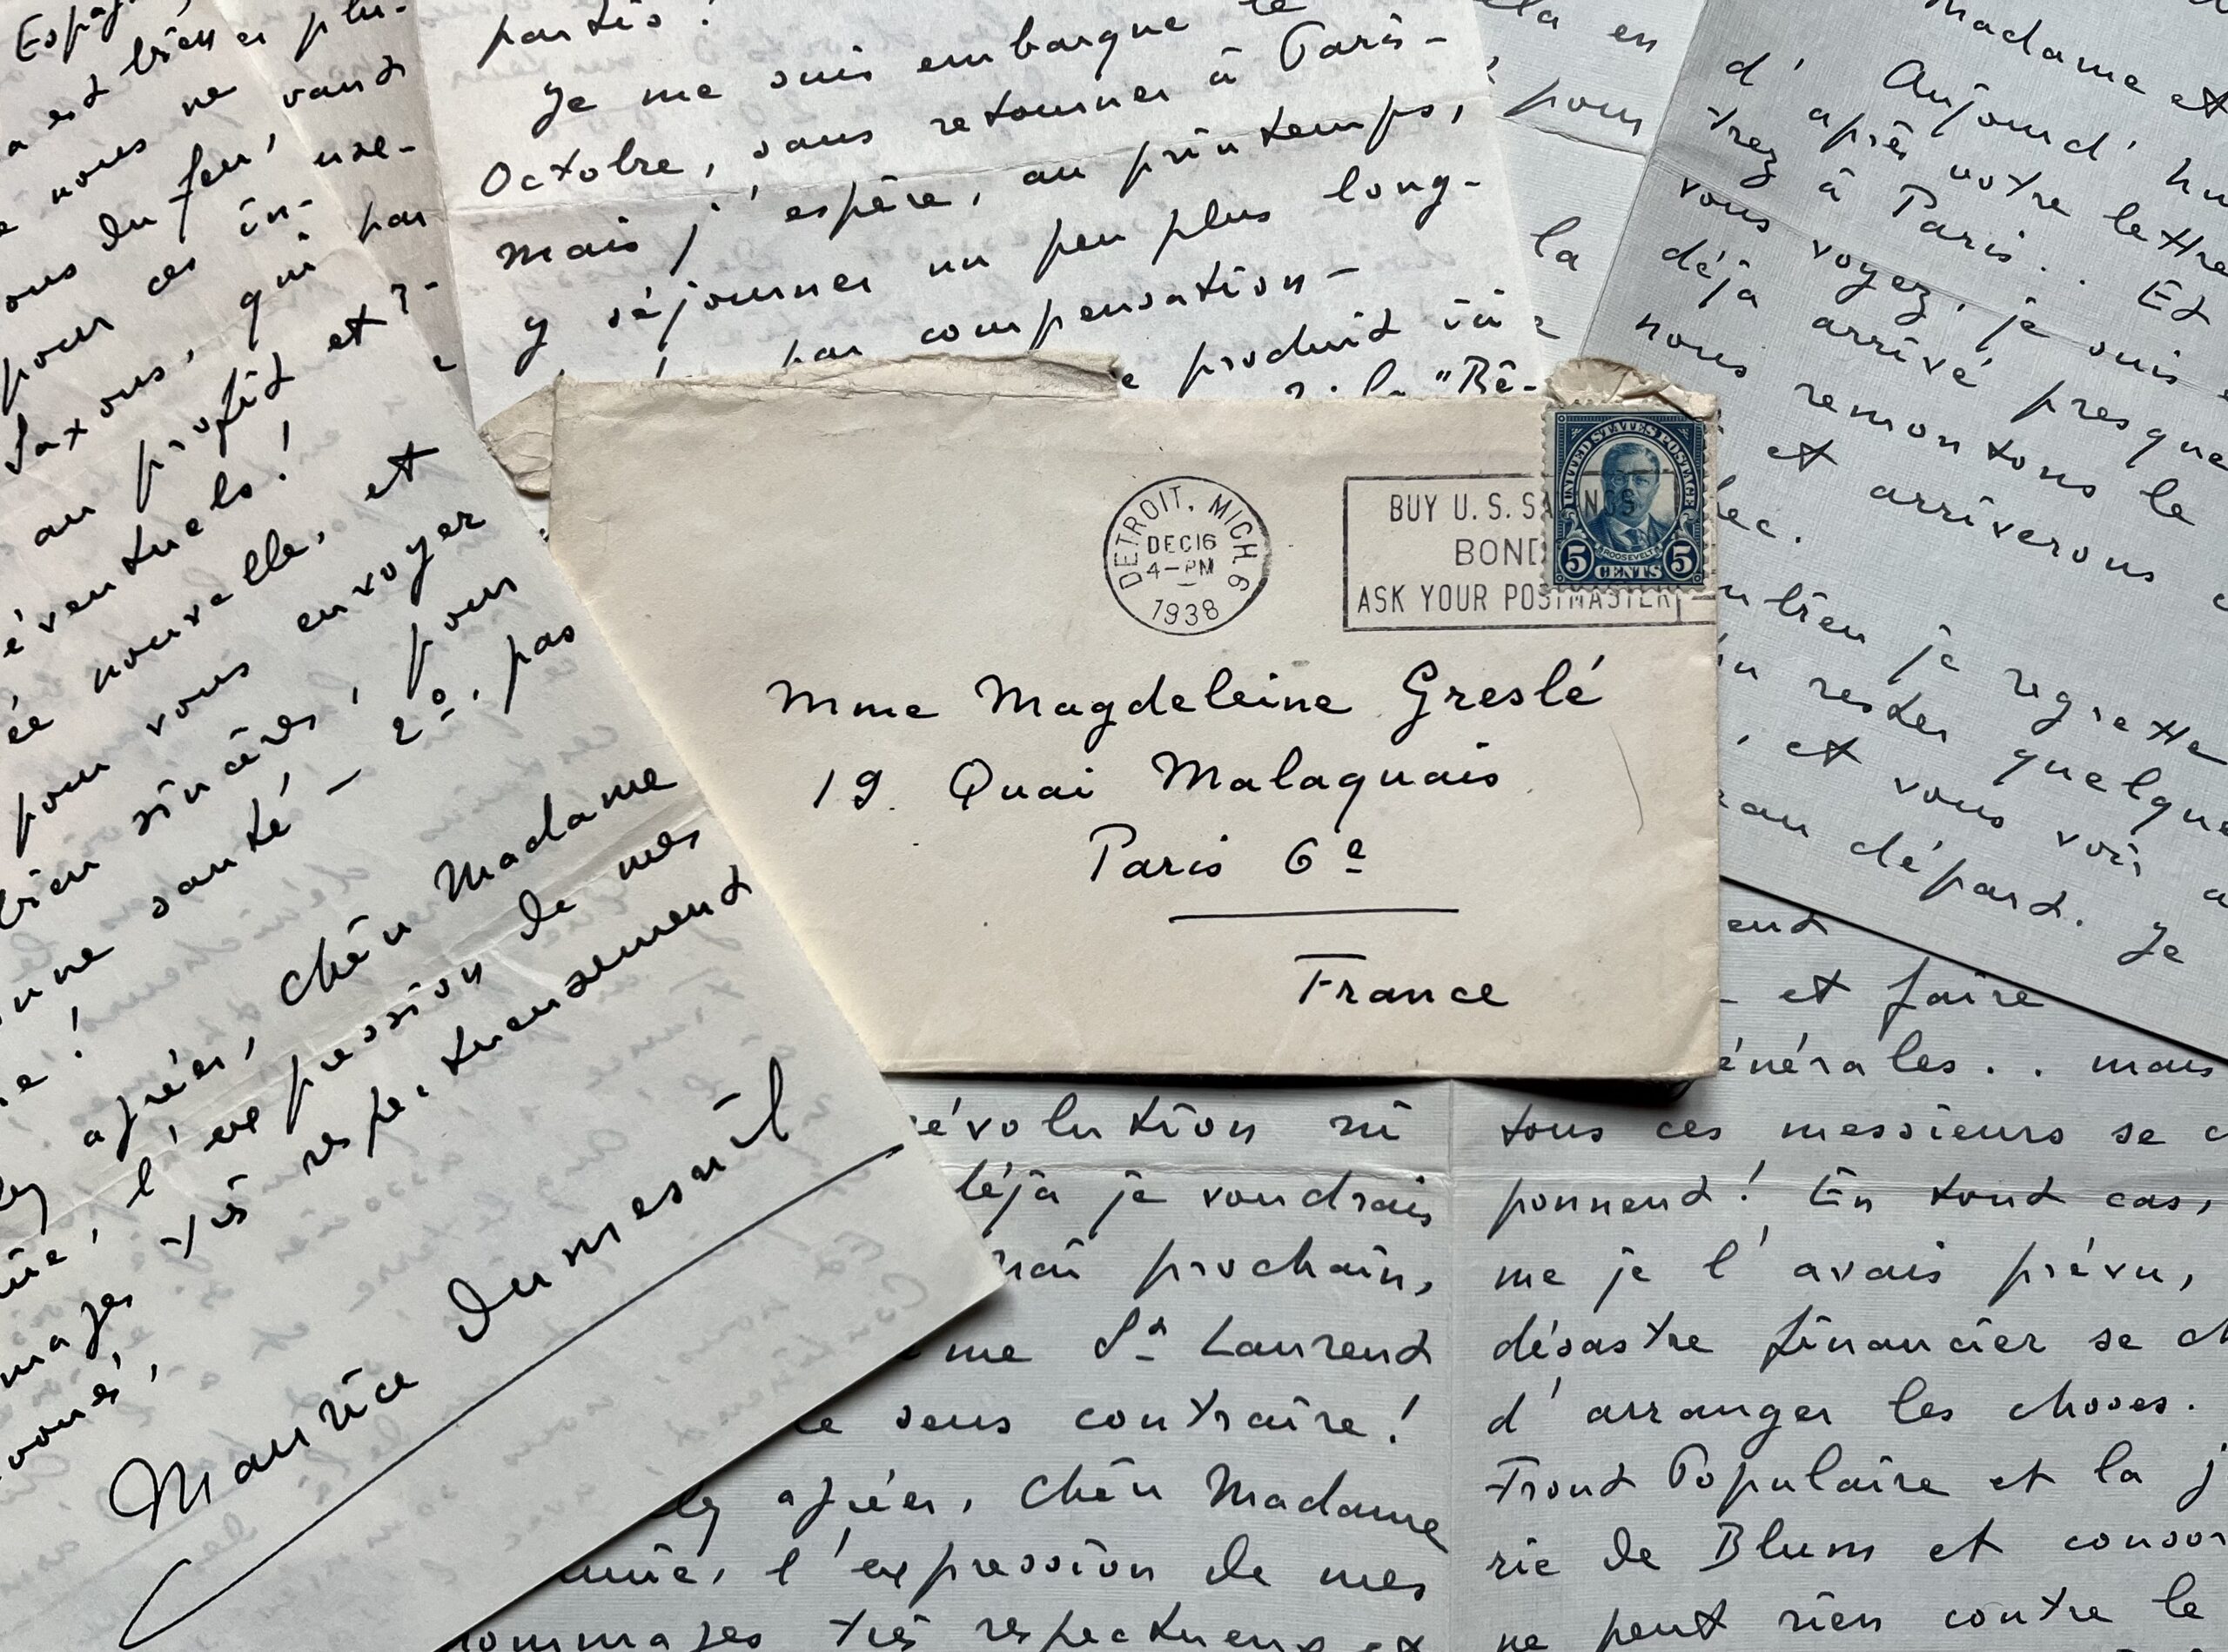 Espag
est bien en plu-
nous ne vaut
ous du feu, use-
pour ces in- par
Saxons, qui
au profit et
éventuels!
ée nouvelle, et
pour vous envoyer
bien sincères, pour
nne santé – 2°, pas
agréer, chère Madame
l'expression de mes
très respectueusement
Maurice Dumesnil
partis!
Je me suis embarqué le
Octobre, sans retourner à Paris-
mais j'espère, au printemps,
y séjourner un peu plus long-
par compensation-
produit
la "Bê-
la en
pour
la
Madame et
d'Aujourd'hu
après votre lettre
trez à Paris.. Et
vous voyez, je suis
déjà arrivé presque
nous remontons le
et arriverons
bec.
je regrette
rester quelque
et vous voir
départ. Je
DETROIT, MICH. 9
DEC 16
4-PM
1938
BUY U. S. SAVINGS
BOND
ASK YOUR POSTMASTER
UNITED STATES POSTAGE
ROOSEVELT
5 CENTS 5
Mme Magdeleine Greslé
19. Quai Malaquais
Paris 6e
France
évolution ni
déjà je voudrais
mai prochain,
me St Laurent
le sens contraire!
agréer, chère Madame
l'expression de mes
hommages très respectueux et
ent
et faire
énérales.. mais
tous ces messieurs se
ponnent! En tout cas,
me je l'avais prévu,
désastre financier se
d'arranger les choses.
Front Populaire et la
rie de Blum et
ne peut rien contre le